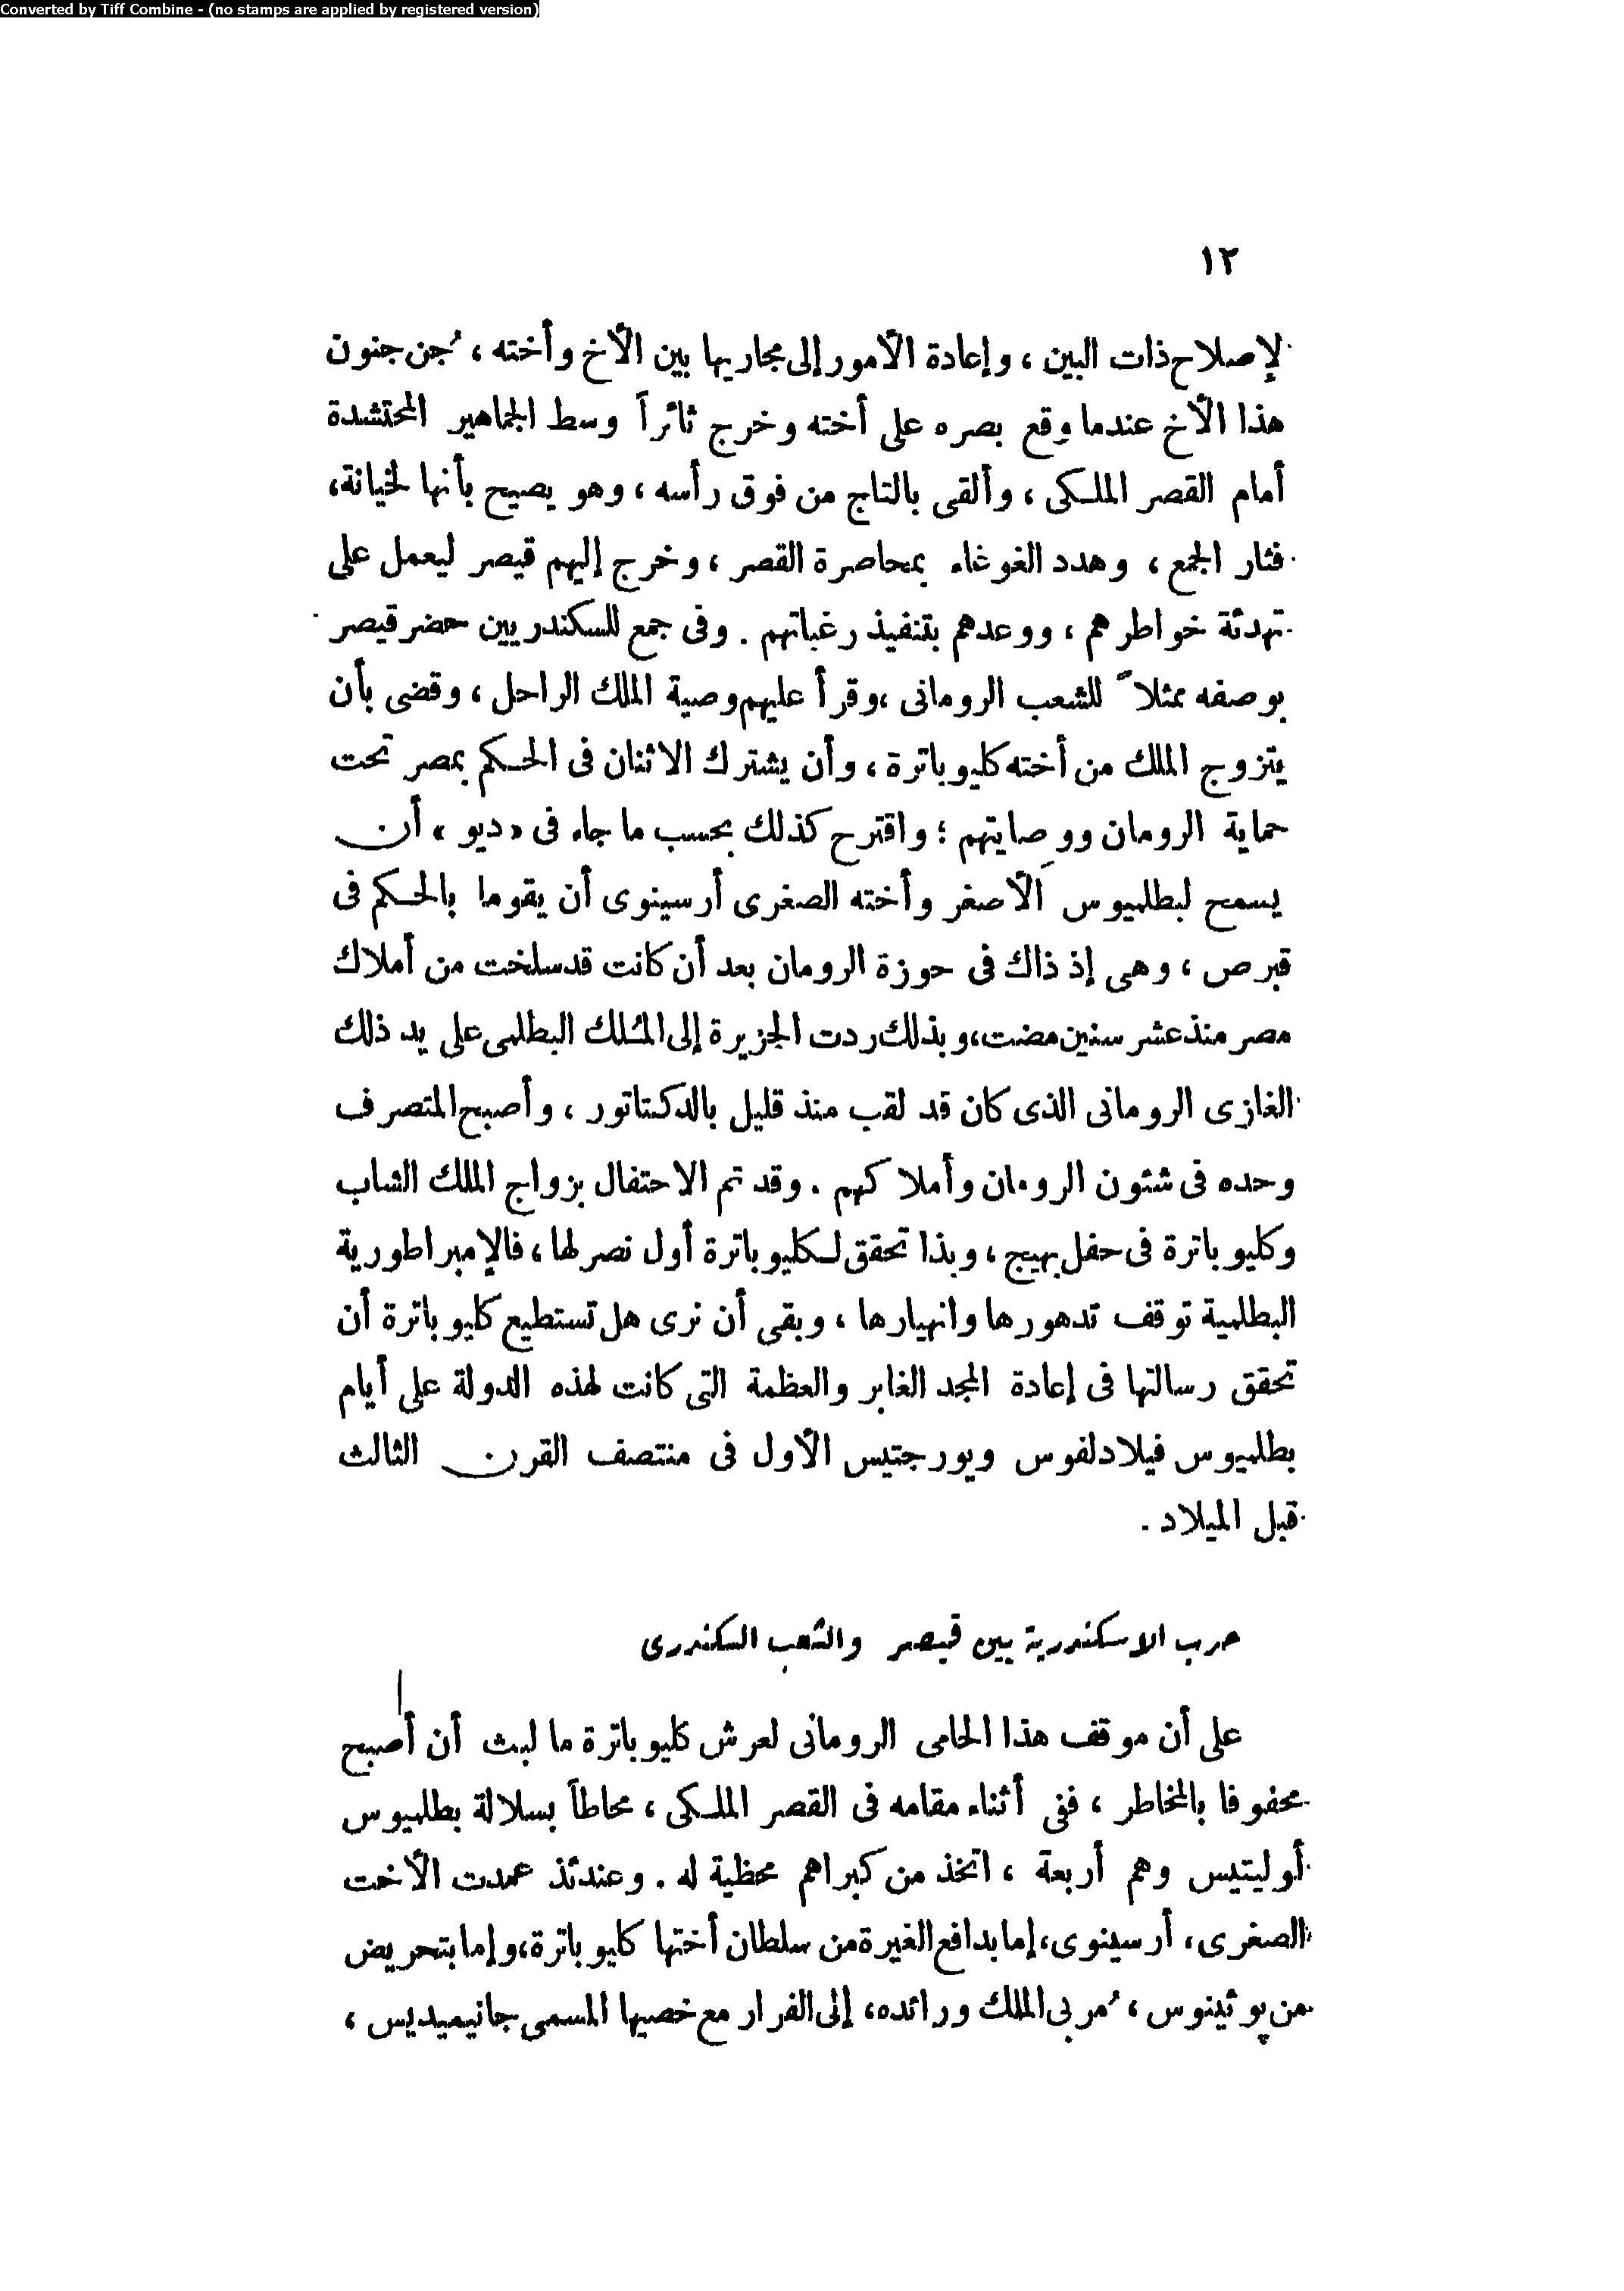 Converted by Tiff Combine - (no stamps are applied by registered version)
١٢
لإصلاح ذات البين ، وإعادة الأمور إلى مجاريها بين الأخ وأخته ، جُن جنون
هذا الأخ عندما وقع بصره على أخته وخرج ثائراً وسط الجماهير المحتشدة
أمام القصر الملكى ، وألقى بالتاج من فوق رأسه ، وهو يصيح بأنها لخيانة ،
فثار الجمع ، وهدد الغوغاء بمحاصرة القصر ، وخرج إليهم قيصر ليعمل على
تهدئة خواطرهم ، ووعدهم بتنفيذ رغباتهم . وفى جمع للسكندريين حضر قيصر
بوصفه ممثلاً للشعب الرومانى ، وقرأ عليهم وصية الملك الراحل ، وقضى بأن
يتزوج الملك من أخته كليوباترة ، وأن يشترك الاثنان فى الحكم بمصر تحت
حماية الرومان ووصايتهم ؛ واقترح كذلك بحسب ما جاء فى «ديو» أن
يسمح لبطلميوس الأصغر وأخته الصغرى أرسينوى أن يقوما بالحكم فى
قبرص ، وهى إذ ذاك فى حوزة الرومان بعد أن كانت قد سلخت من أملاك
مصر منذ عشر سنين مضت ، وبذلك ردت الجزيرة إلى المُلك البطلمى على يد ذلك
الغازى الرومانى الذى كان قد لقب منذ قليل بالدكتاتور ، وأصبح المتصرف
وحده فى شئون الرومان وأملاكهم . وقد تم الاحتفال بزواج الملك الشاب
وكليوباترة فى حفل بهيج ، وبذا تحقق لكليوباترة أول نصر لها ، فالإمبراطورية
البطلمية توقف تدهورها وانهيارها ، وبقى أن نرى هل تستطيع كليوباترة أن
تحقق رسالتها فى إعادة المجد الغابر والعظمة التى كانت لهذه الدولة على أيام
بطلميوس فيلادلفوس ويورجتيس الأول فى منتصف القرن الثالث
قبل الميلاد .
حرب الاسكندرية بين قيصر والشعب السكندرى
على أن موقف هذا الحامى الرومانى لعرش كليوباترة ما لبث أن أصبح
محفوفا بالمخاطر ، ففى أثناء مقامه فى القصر الملكى ، محاطاً بسلالة بطلميوس
أوليتيس وهم أربعة ، اتخذ من كبراهم محظية له . وعندئذ عمدت الأخت
الصغرى ، أرسينوى ، إما بدافع الغيرة من سلطان أختها كليوباترة ، وإما بتحريض
من پوثينوس ، مُربى الملك ورائده ، إلى الفرار مع خصيها المسمى جانيميديس ،